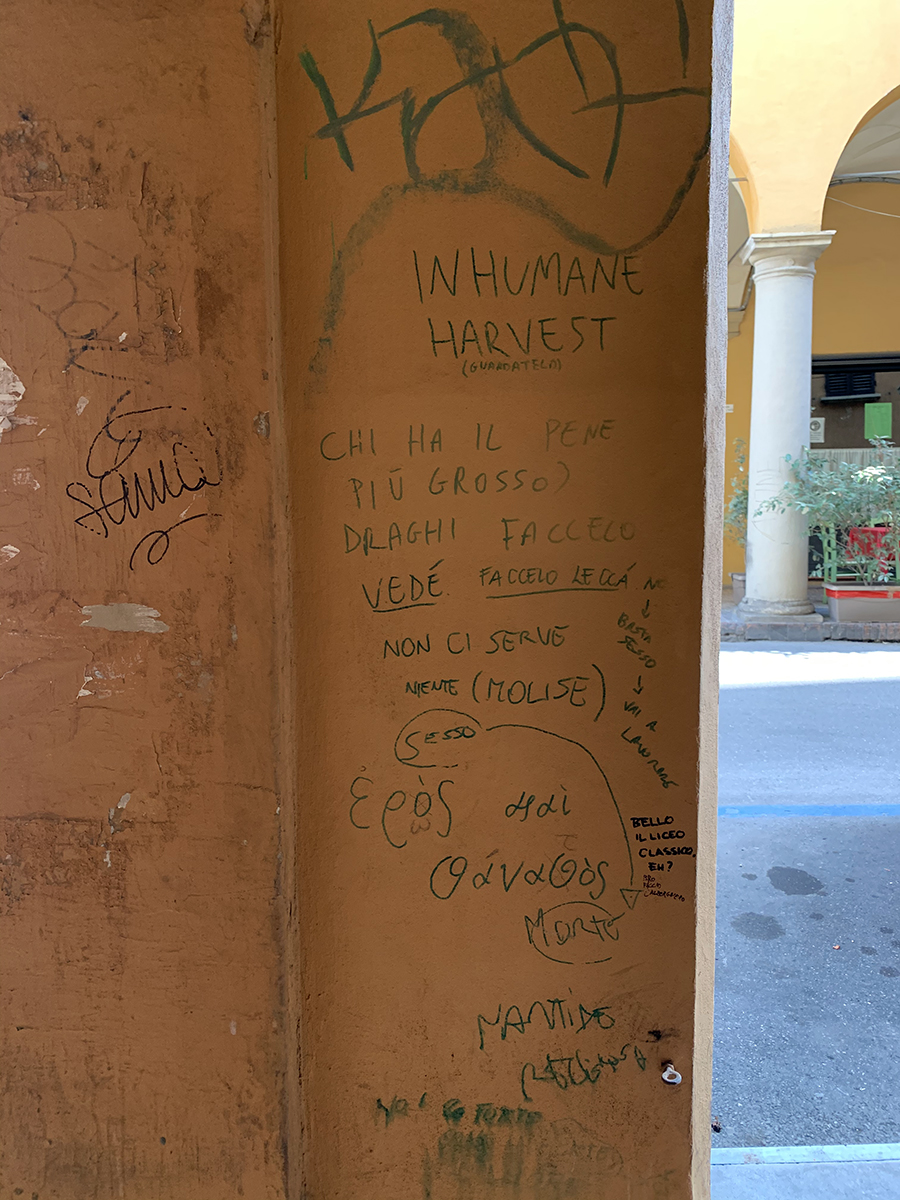 INHUMANE
HARVEST
(GUARDATELO)
CHI HA IL PENE
PIÙ GROSSO)
DRAGHI FACCELO
VEDÉ. FACCELO LECCÁ. NO
↓
BASTA
SESSO
↓
VAI A
LAVORARE
NON CI SERVE
NIENTE (MOLISE)
SESSO
ἐρὸς καὶ
ω
BELLO
IL LICEO
CLASSICO,
EH?
τ
θάναθὸς
MORTE
MANTIDE
RELIGIOSA